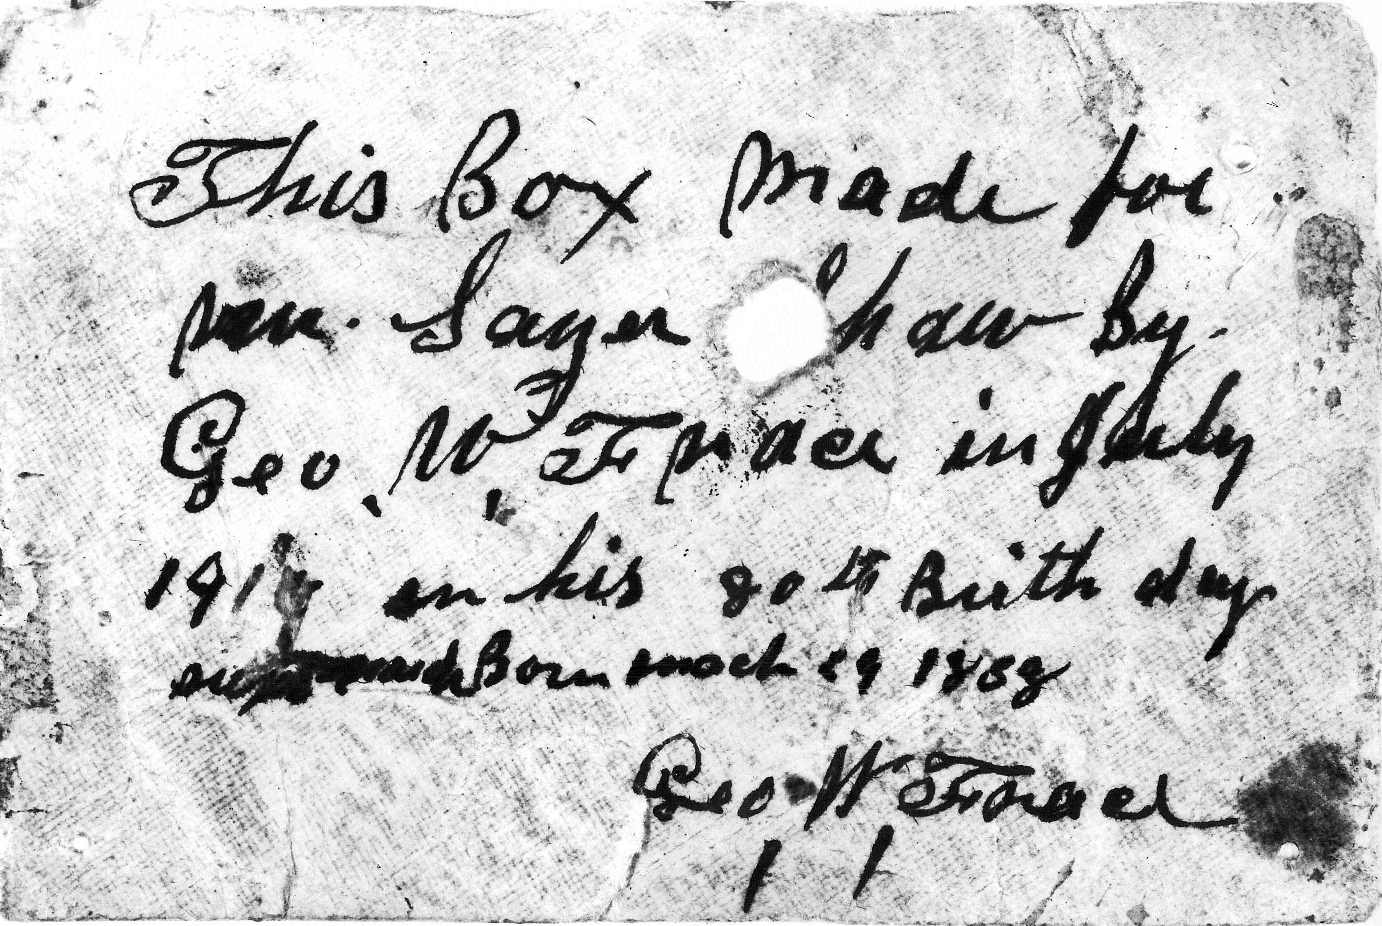 This Box Made for
Sayer Shaw By
Geo W in July
191 on his 80th Birth day
Born mach 29 1838
Geo W